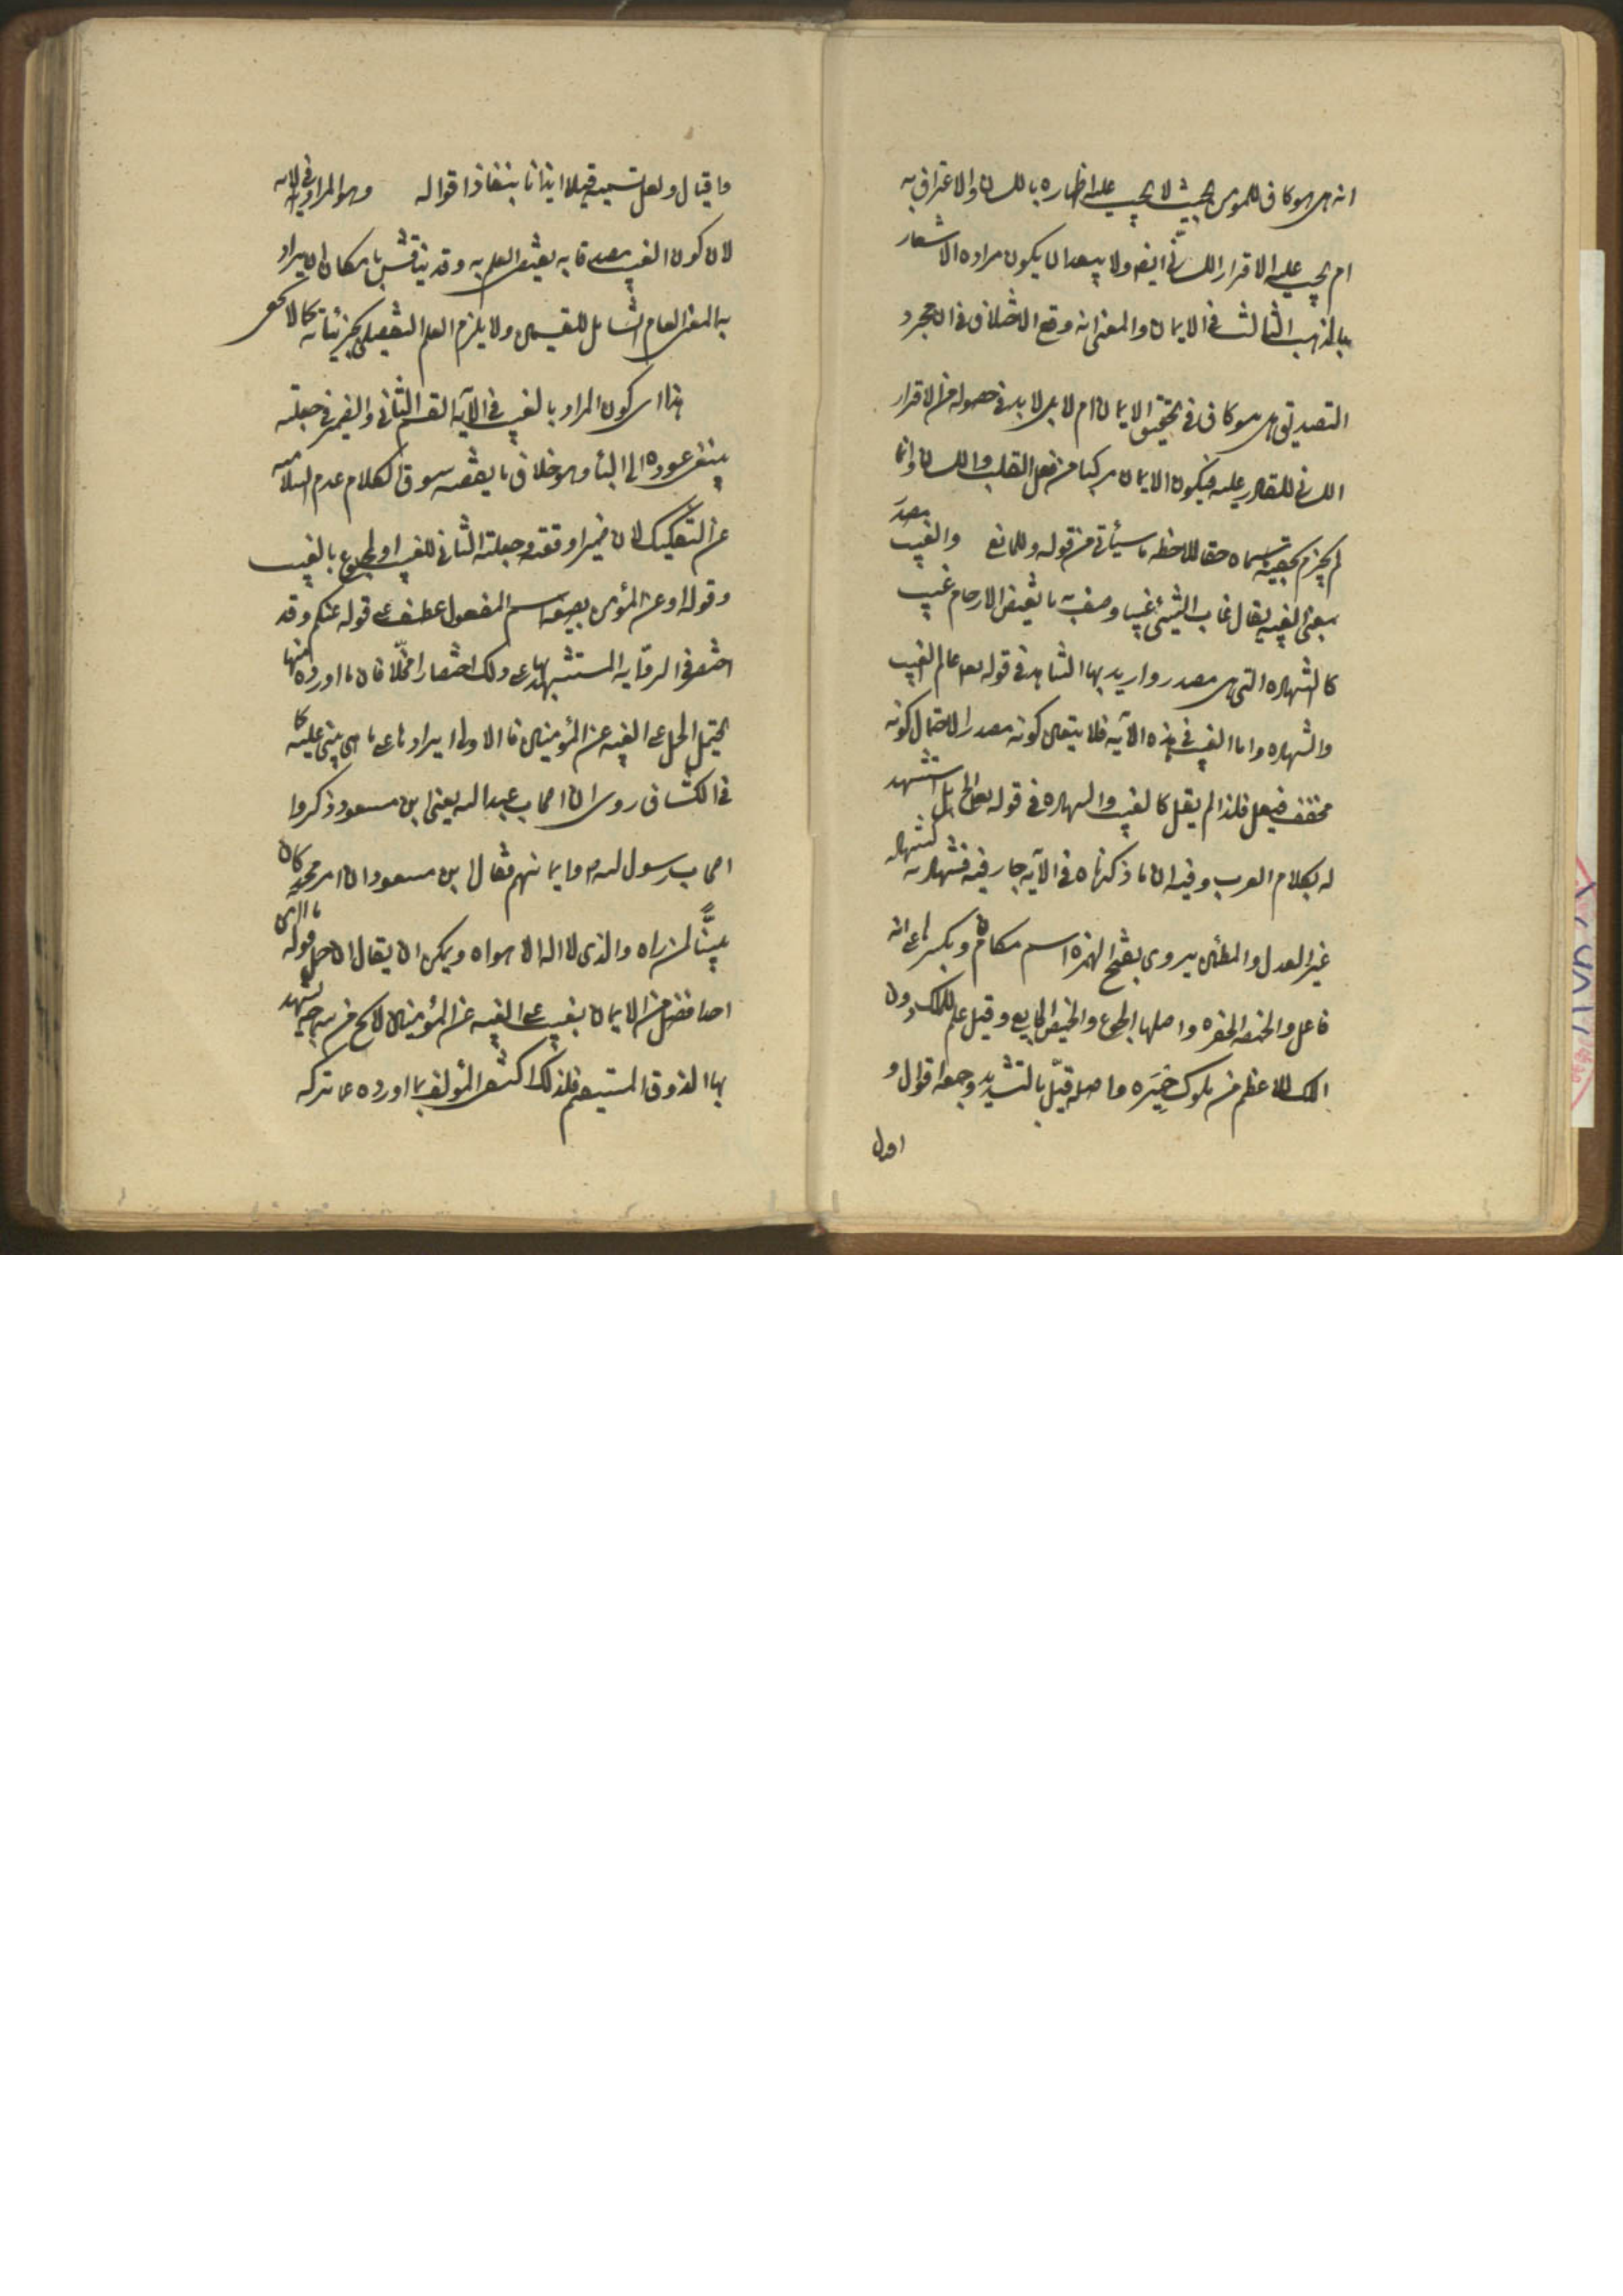 انه هل هو كاف للمؤمن بحيث لا يجب عليه اظهاره باللسان والاعتراف به
ام يجب عليه الاقرار اللساني ايضا ولا يبعد ان يكون مراده الاشعار
بالمذهب الثالث في الايمان والمعنى انه وقع الاختلاف في ان مجرد
التصديق هل هو كاف في تحقيق الايمان ام لا بل لا بد في حصوله من الاقرار
اللساني للقادر عليه فيكون الايمان مركبا من فعل القلب واللسان وانما
لم يجزم بحقيته حقا لملاحظه ما سيأتي من قوله وللمانع والغيب مصدر
بمعنى الغيبه يقال غاب الشيئ غيبا وصف به ما تغيض الارحام غيب
كالشهاده التي هي مصدر واريد بها الشاهد في قوله تعه عالم الغيب
والشهاده واما الغيب في هذه الآيه فلا يتعين كونه مصدرا لاحتمال كونه
مخفف فيعل فلذا لم يقل كالغيب والشهاده في قوله تعالى بل استشهد
له بكلام العرب وفيه ان ما ذكرناه في الآيه جار فيه فشهادته كشهاده
غير العدل والمطمئن يروى بفتح الهمزه اسم مكان وبكسرها على انه
فاعل والخمصه الحفره واصلها الجوع وقيل علم للملك دون
الملك الاعظم من ملوك حمير واصله قيّل بالتشديد وجمعه اقوال و
اقيال
واقيال ولعل تسميته قيلا ايذانا بنفاذ اقواله وهو المراد به في الآيه
لان كون الغيب مصدقا به يقتضى العلم به وقد يناقش بامكان ان يراد
به المعنى العام الشامل للقسمين ولا يلزم العلم التفصيلى بجزئياته كما لا يخفى
هذا اى كون المراد بالغيب في الآيه القسم الثاني والضمير في جعلته
ينبغى عوده الى البأ وهو خلاف ما يقتضيه سوق الكلام عدم السلامه
عن التفكيك لان ضميرا وقعته وجعلته الثاني للغيب او لمجموع بالغيب
وقوله او عن المؤمن به بصيغه اسم المفعول عطف على قوله عنكم وقد
اختصر في الروايه المستشهد بها على ذلك اختصارا مخلّا فان ما اورده منها
يحتمل الحمل على الغيبه عن المؤمنين فالاولى ايرادها على ما هى مبنى عليه كما
في الكشاف روى ان اصحاب عبد الله يعنى ابن مسعود ذكروا
اصحاب رسول الله ص وايمانهم فقال ابن مسعود ان امر محمد كان
بيّنًا لمن رآه والذى لا اله الا هو اه ويمكن ان يقال ان حمل قوله ما آمن
احد افضل من الايمان بغيب على الغيبه عن المؤمنين لا يخ من سماجه يشهد
بها الذوق المستقيم فلذلك اكتفى المؤلف بما اورده عما تركه